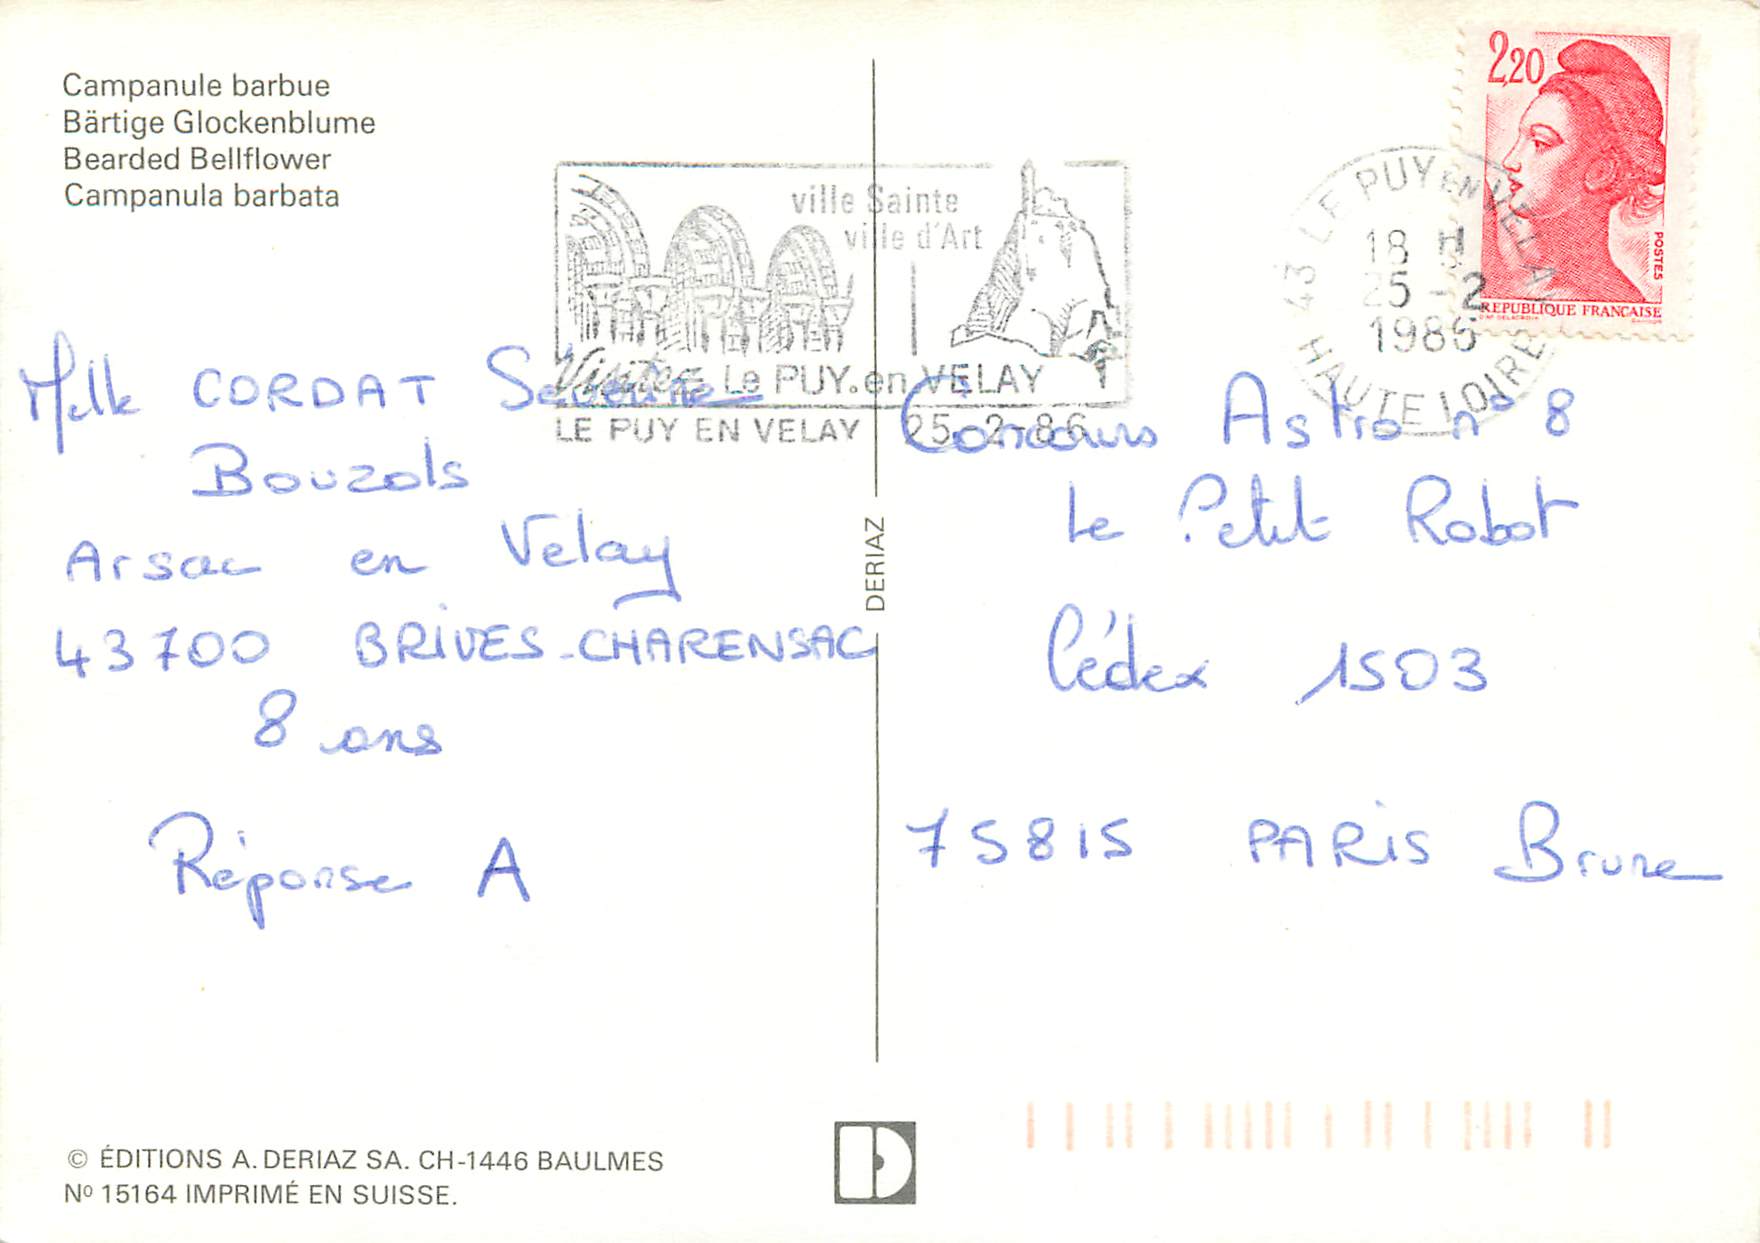 Campanule barbue
Bärtige Glockenblume
Bearded Bellflower
Campanula barbata
ville Sainte
ville d'Art
Visitez Le PUY.en VELAY
LE PUY EN VELAY 25.2.86
43 LE PUY EN VELAY
18 H
25 - 2
1986
HAUTE LOIRE
2,20
POSTES
REPUBLIQUE FRANCAISE
Melle CORDAT Séverine
Bouzols
Arsac en Velay
43700 BRIVES-CHARENSAC
8 ans
Réponse A
DERIAZ
Concours Astro n° 8
Le Petit Robot
Cédex 1503
75815 PARIS Brune
© ÉDITIONS A. DERIAZ SA. CH-1446 BAULMES
Nº 15164 IMPRIMÉ EN SUISSE.